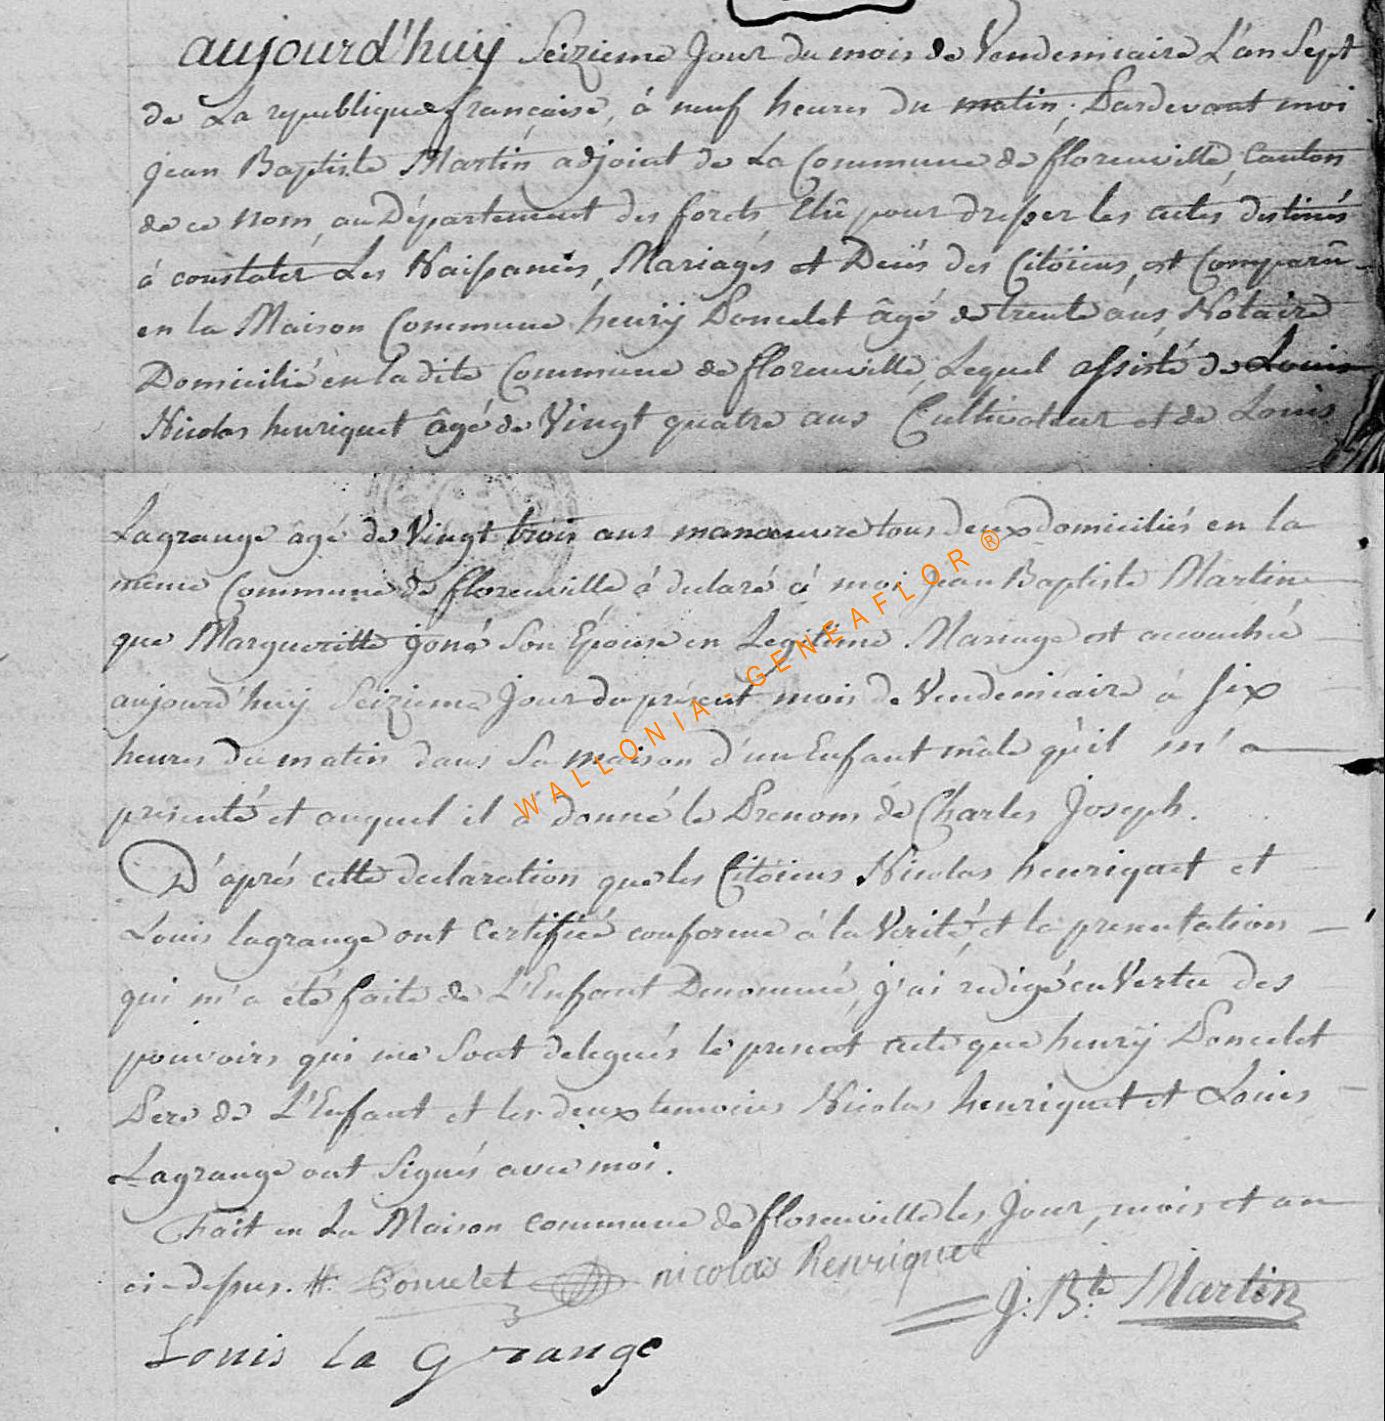 aujourd'huij Seizieme Jour du mois de Vendemiaire L'an Sept
de La republique française, á neuf heures du matin; Pardevant moi
jean Baptiste Martin adjoint de La Commune de florenville, Canton
de ce nom, au Département des forets, Elû pour dresser les actes destinés
á constater Les Naissances, Mariages et Decés des Citoiens, est Comparû
en la Maison Commune henrÿ Poncelet âgé de trente ans Notaire
Domicilié en la dite Commune de florenville, Lequel assisté de Louis
Nicolas henriquet âgé de Vingt quatre ans Cultivateur et de Louis
Lagrange âgé de Vingt trois ans manœuvre tous deux domiciliés en la
même Commune de florenville á declaré á moi jean Baptiste Martin
que Margueritte joné Son Epouse en Legitime Mariage est accouchée
aujourd'huij Seizieme Jour du présent mois de Vendemiaire a six
heures du matin dans Sa maison d'un Enfant mâle qu'il m'a
présenté et auquel il á donné le Prenom de Charles Joseph.
D'aprés cette declaration que les Citoiens Nicolas henriquet et
Louis lagrange ont Certifié conforme á la Verité, et la presentation
qui m'a été faite de L'Enfant Denommé, j'ai redigé en Vertu des
pouvoirs qui me Sont delegués le present acte que henrÿ Poncelet
Pere de L'Enfant et les deux temoins Nicolas henriquet et Louis
Lagrange ont Signés avec moi.
Fait en La Maison commune de florenville les Jour, mois et an
ci-dessus. H. Poncelet nicolas Henriquet
J: B.te Martin
Louis la Grange
WALLONIA - GENEAFLOR ®